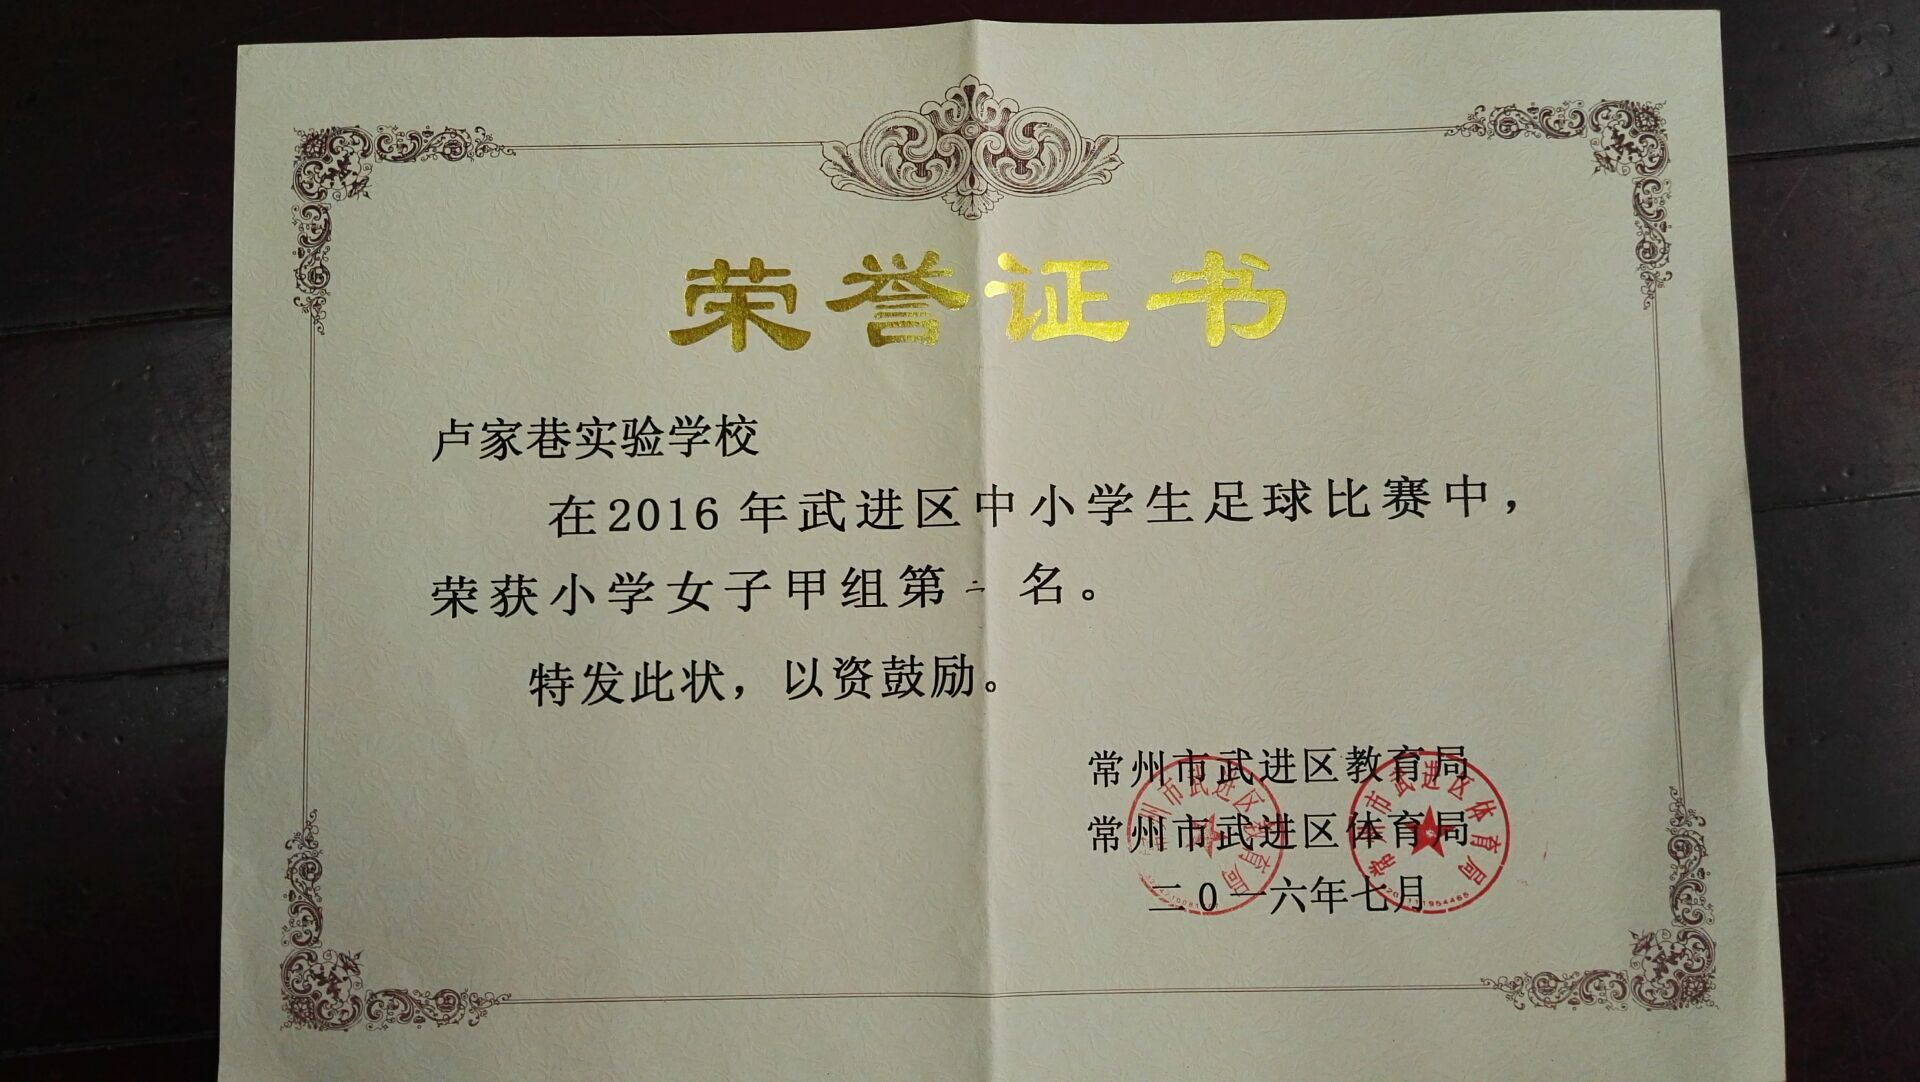 荣誉证书
卢家巷实验学校
在2016年武进区中小学生足球比赛中，
荣获小学女子甲组第二名。
特发此状，以资鼓励。
常州市武进区教育局
常州市武进区体育局
二0一六年七月
州市武进区教育局
常州市武进区体育局